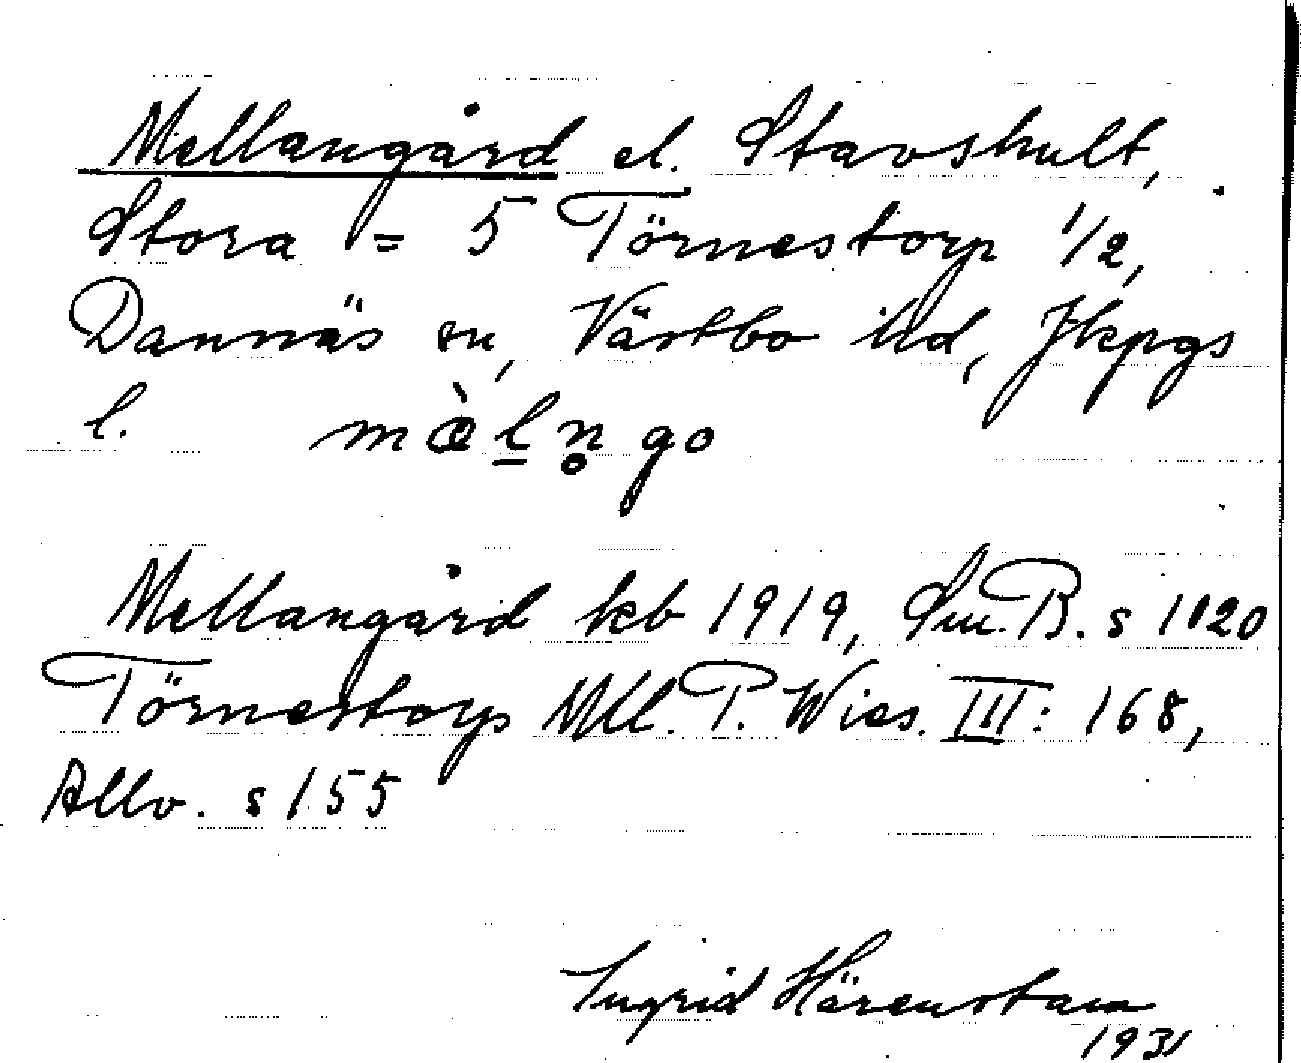 Mellangård el. Stavshult,
Stora = 5 Törnestorp 1/2,
Dannäs sn, Västbo hd, Jkpgs
l. mæ̀l̠n̥go
Mellangård kb 1919, Sm.B. s 1120
Törnestorp Mll. P. Wies. III: 168,
Allv. s 155
Ingrid Härenstam
1931